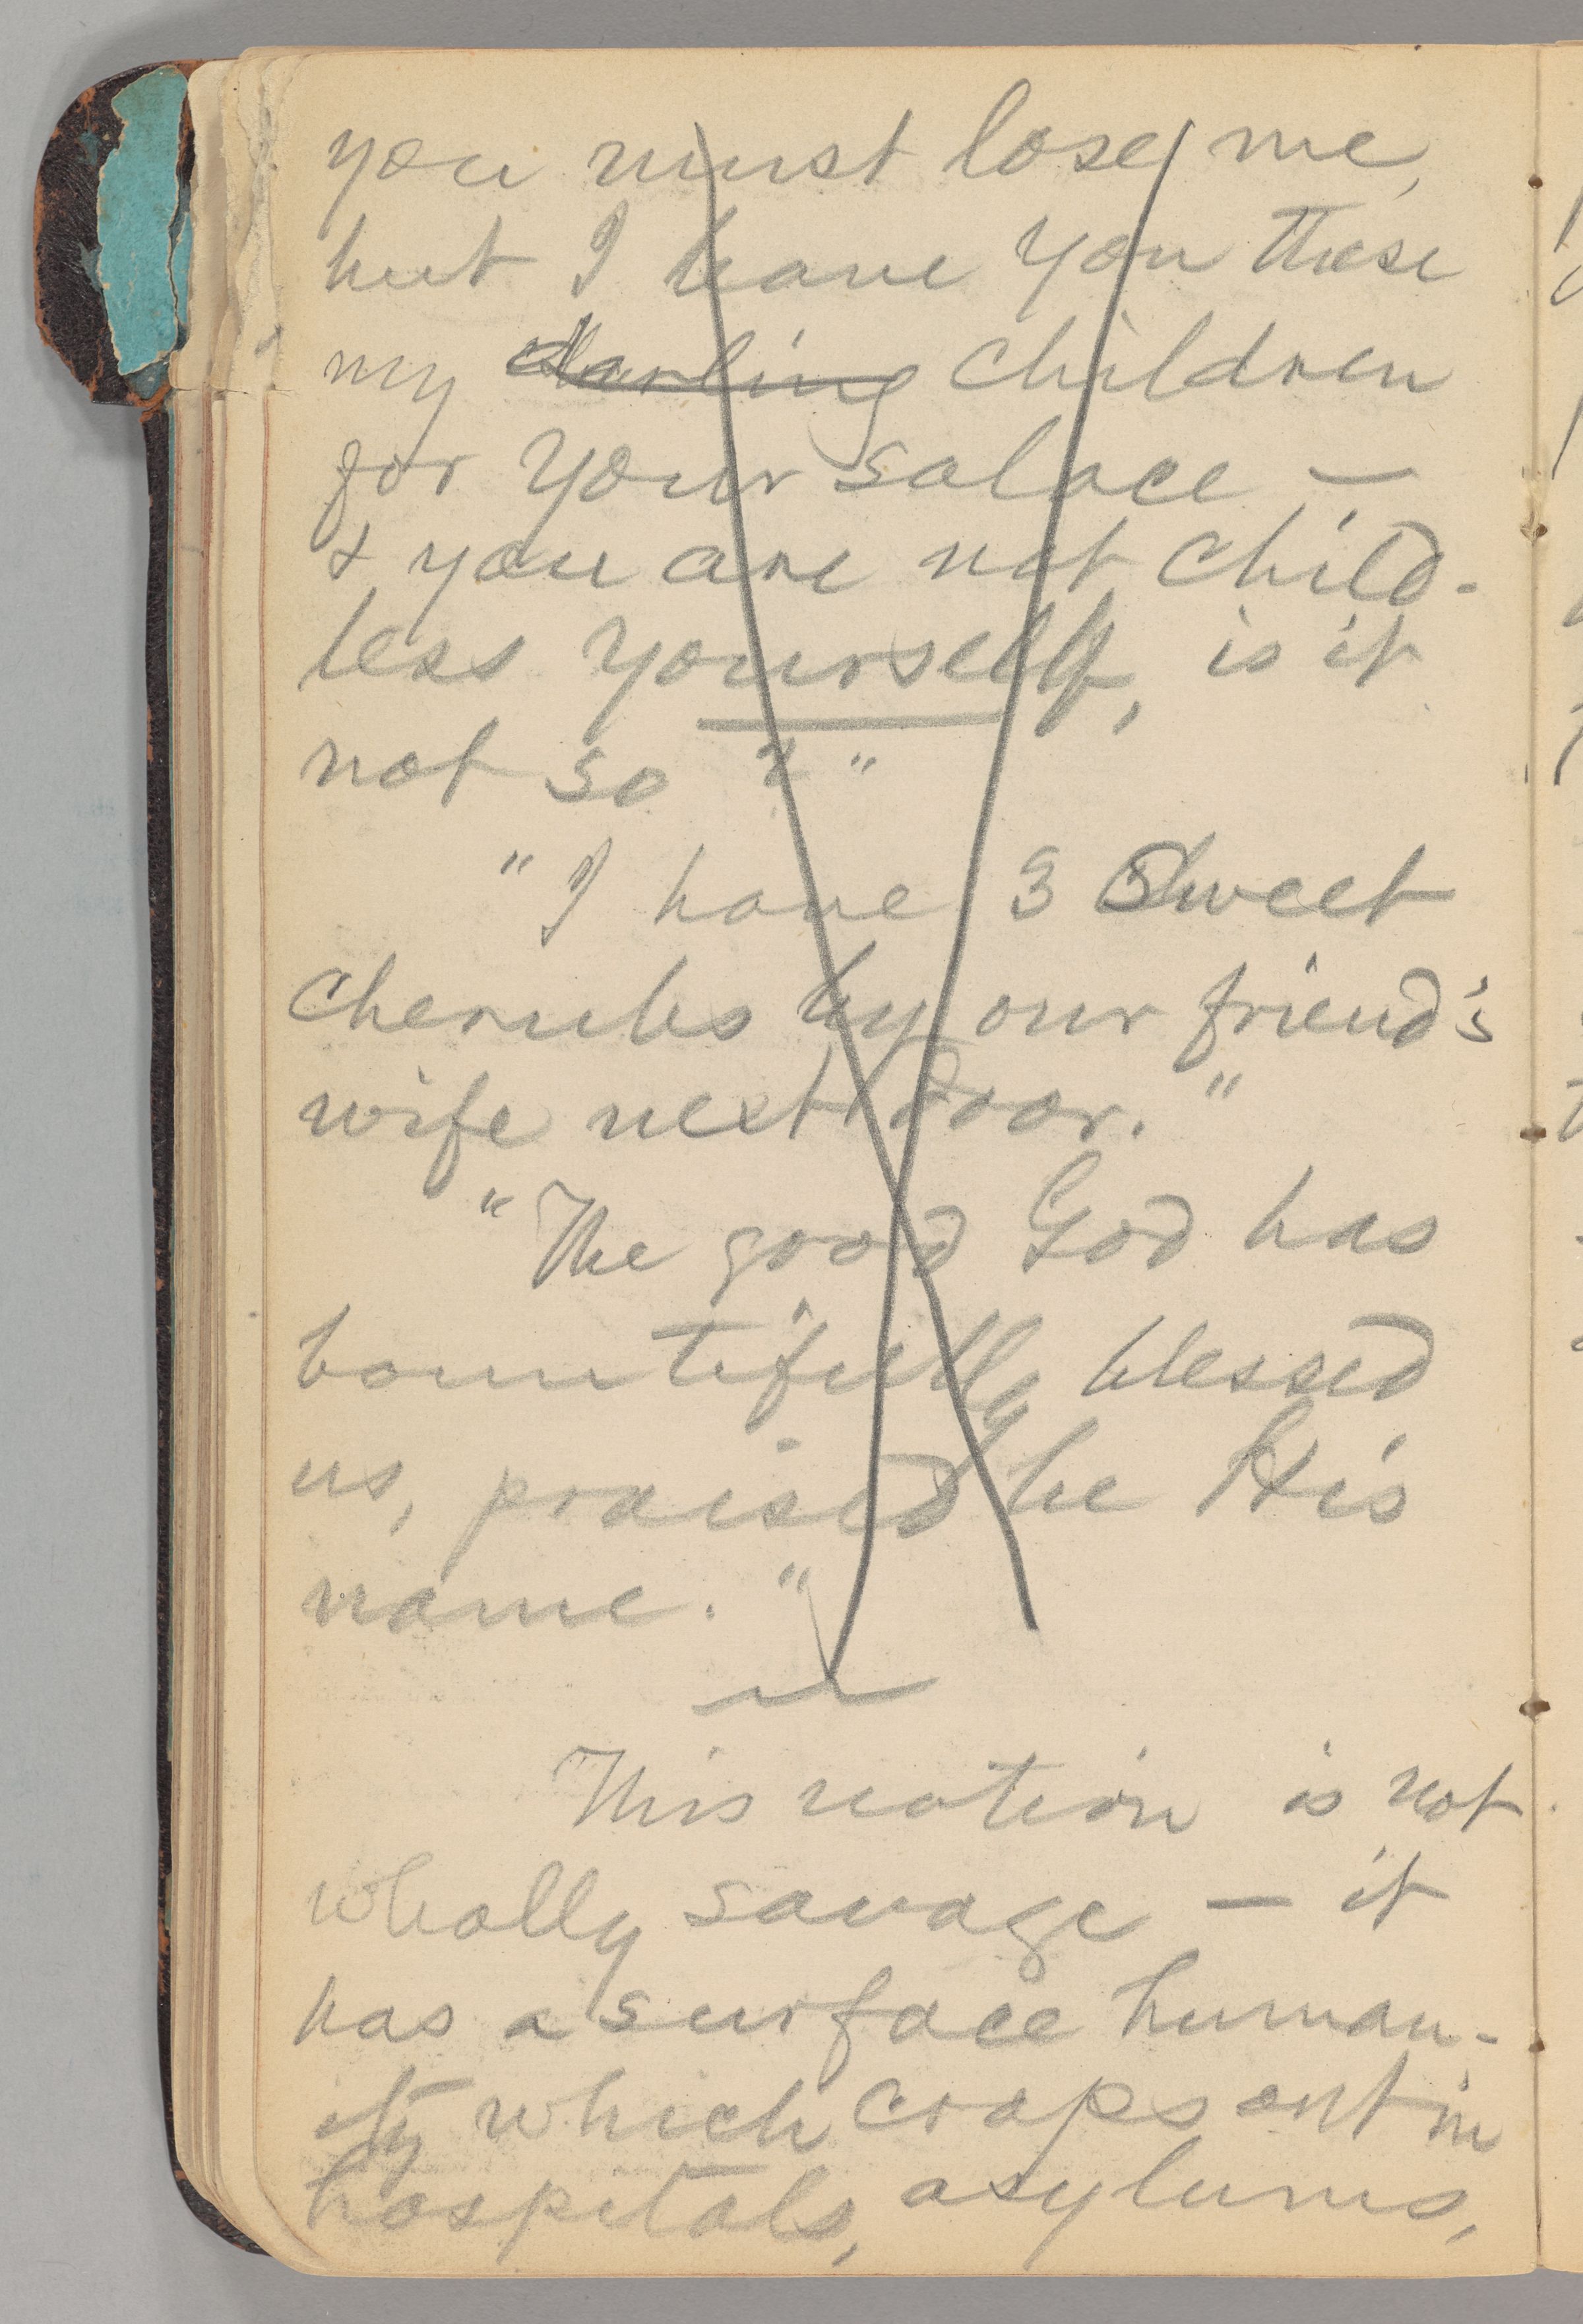 you must lose me,
but I leave you these
my darling children
for your solace —
& you are not child-
less yourself, is it
not so?"
"I have 3 sweet
cherubs by our friend's
wife next door."
"The good God has
bountifully blessed
us, praised be His
name."
This nation is not
wholly savage — it
has a surface human-
ity which crops out in
hospitals, asylums,